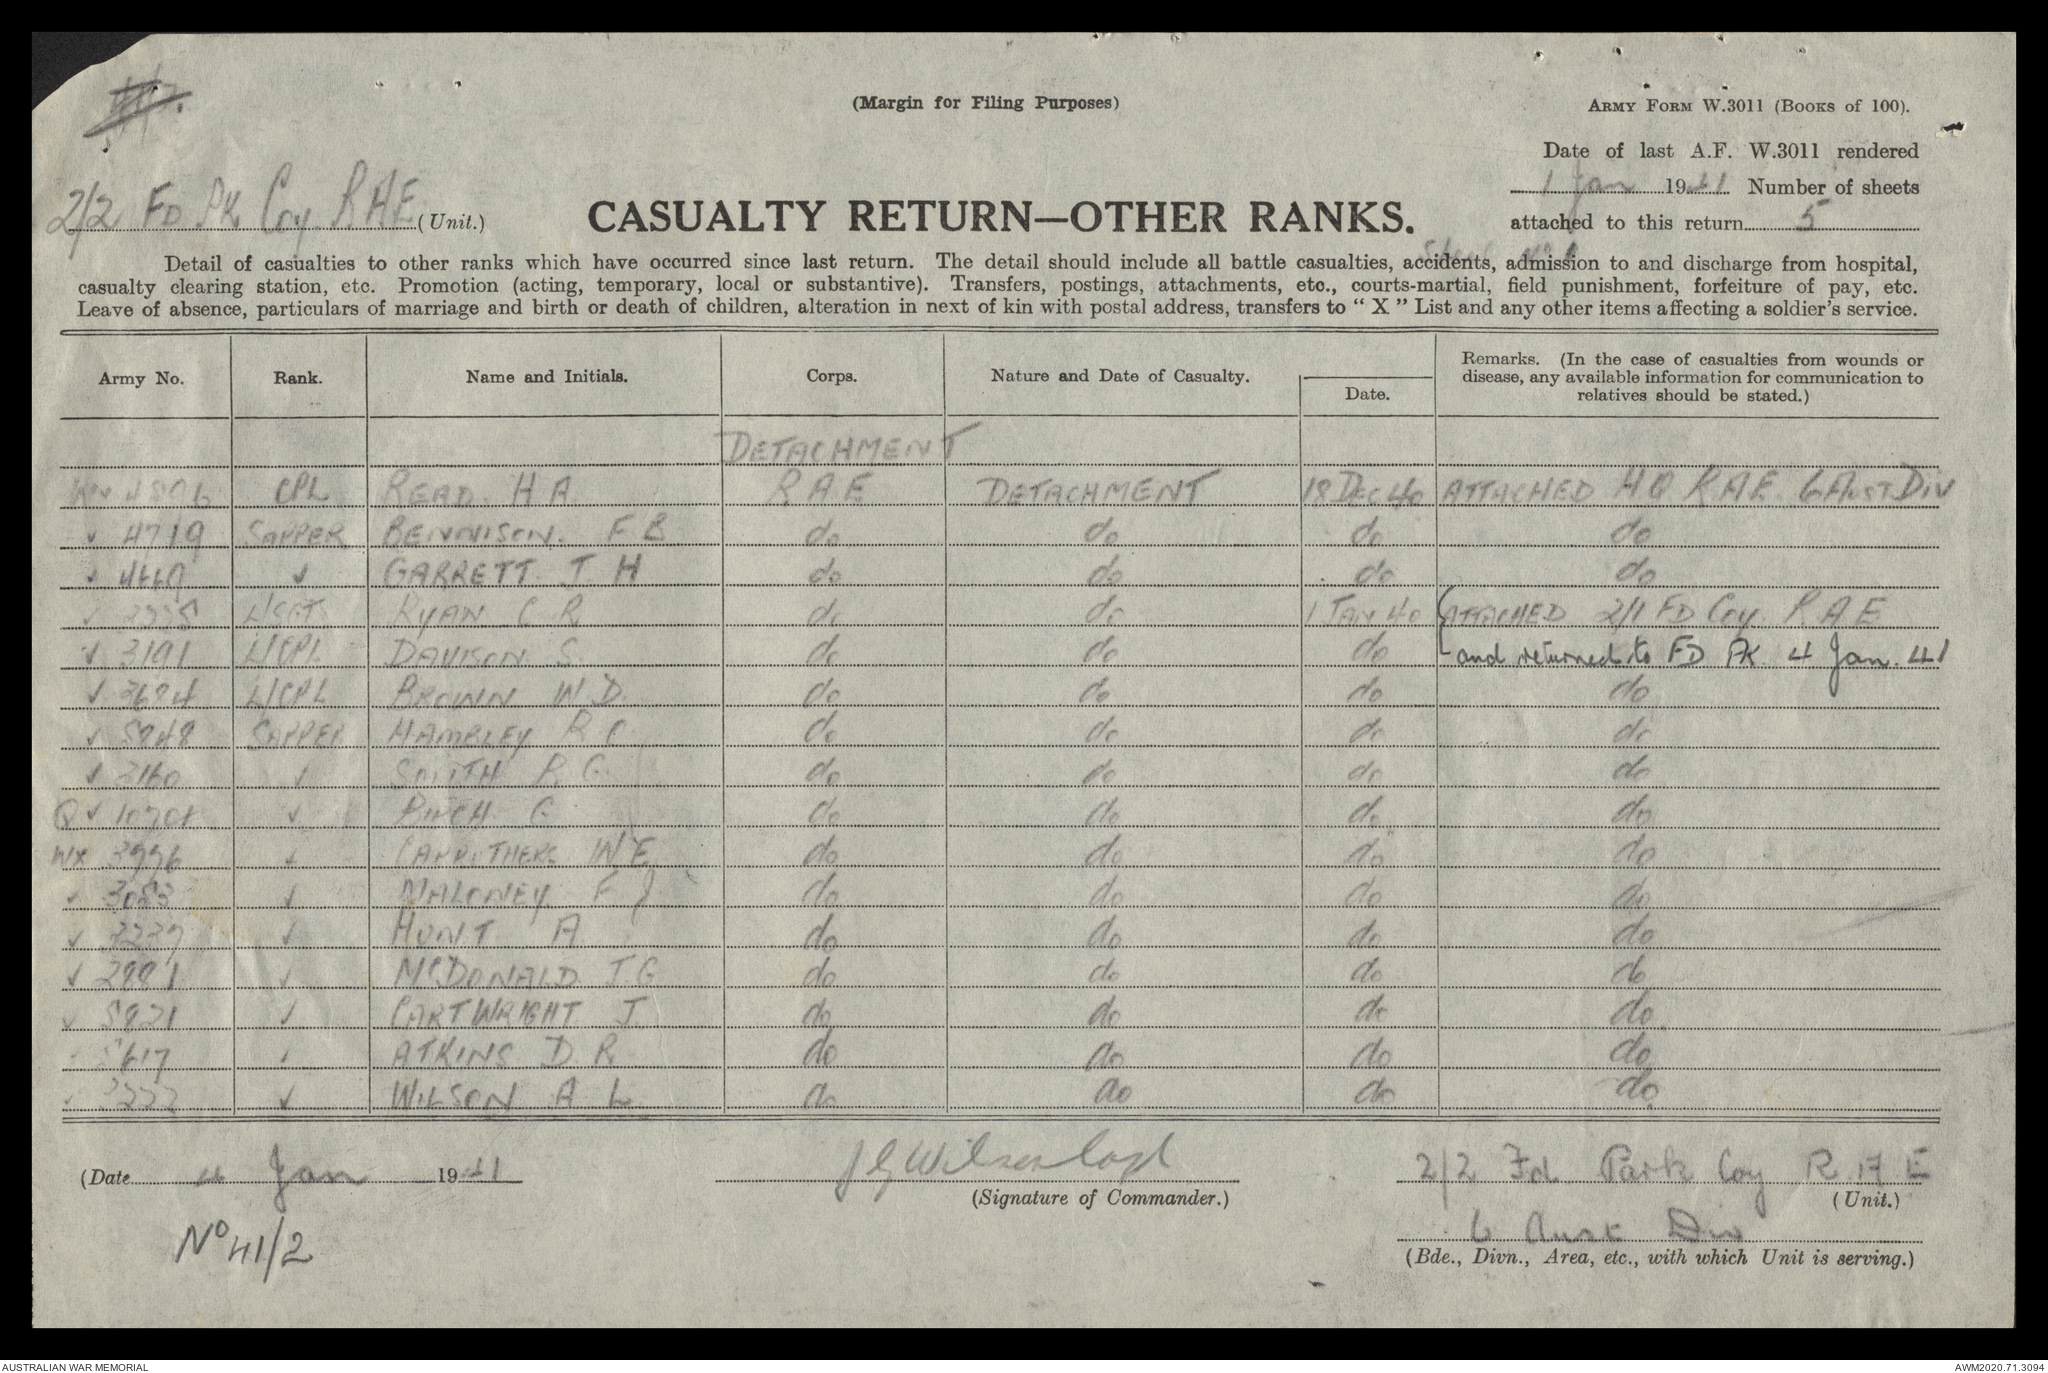 (Margin for Filing Purposes)
ARMY FORM W.3011 (Books of 100).
Date of last A.F. W.3011 rendered
1 Jan 1941 Number of sheets
attached to this return 5
2/2 FD PK Coy. RAE (Unit.)
CASUALTY RETURN—OTHER RANKS.
Detail of casualties to other ranks which have occurred since last return. The detail should include all battle casualties, accidents, admission to and discharge from hospital,
casualty clearing station, etc. Promotion (acting, temporary, local or substantive). Transfers, postings, attachments, etc., courts-martial, field punishment, forfeiture of pay, etc.
Leave of absence, particulars of marriage and birth or death of children, alteration in next of kin with postal address, transfers to " X " List and any other items affecting a soldier's service.
Army No. Rank. Name and Initials. Corps. Nature and Date of Casualty. Date. Remarks. (In the case of casualties from wounds or
disease, any available information for communication to
relatives should be stated.)
DETACHMENT
CPL READ. H A RAE DETACHMENT 18 DEC 40 ATTACHED HQ RAE 6 AUST DIV
✓ 4719 SAPPER BENNISON. F B do do do do
✓ GARRETT J H do do do do
L/SGT RYAN C R do do 1 JAN 40 ATTACHED 2/1 FD Coy. RAE
✓ 3191 L/CPL DAVISON S. do do do and returned to FD PK 4 Jan. 41
✓ L/CPL BROWN W D. do do do do
✓ SAPPER HAMBLEY R C do do do do
✓ 3160 ✓ SMITH R G. do do do do
Q ✓ ✓ do do do do
WX ✓ CARRUTHERS W E do do do do
✓ 3083 ✓ MALONEY. F J do do do do
✓ 3237 ✓ HUNT A do do do do
✓ 2881 ✓ McDONALD J.G do do do do
✓ ✓ CARTWRIGHT J. do do do do
✓ ATKINS D R do do do do
✓ WILSON A L. do do do do
(Date 4 Jan 1941
J G Wilson Capt
(Signature of Commander.)
2/2 Fd Park Coy R.A E
(Unit.)
6 Aust Div
(Bde., Divn., Area, etc., with which Unit is serving.)
No 41/2
AUSTRALIAN WAR MEMORIAL
AWM2020.71.3094